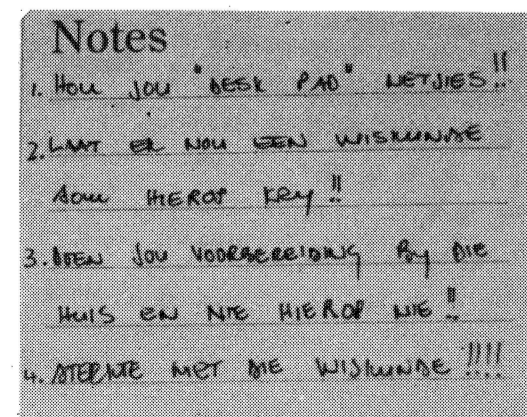 Notes
1. HOU JOU "DESK PAD" NETJIES!!
2. LAAT EK NOU EEN WISKUNDE
SOM HIEROP KRY!!
3. DOEN JOU VOORBEREIDING BY DIE
HUIS EN NIE HIEROP NIE!!
4. STERKTE MET DIE WISKUNDE!!!!